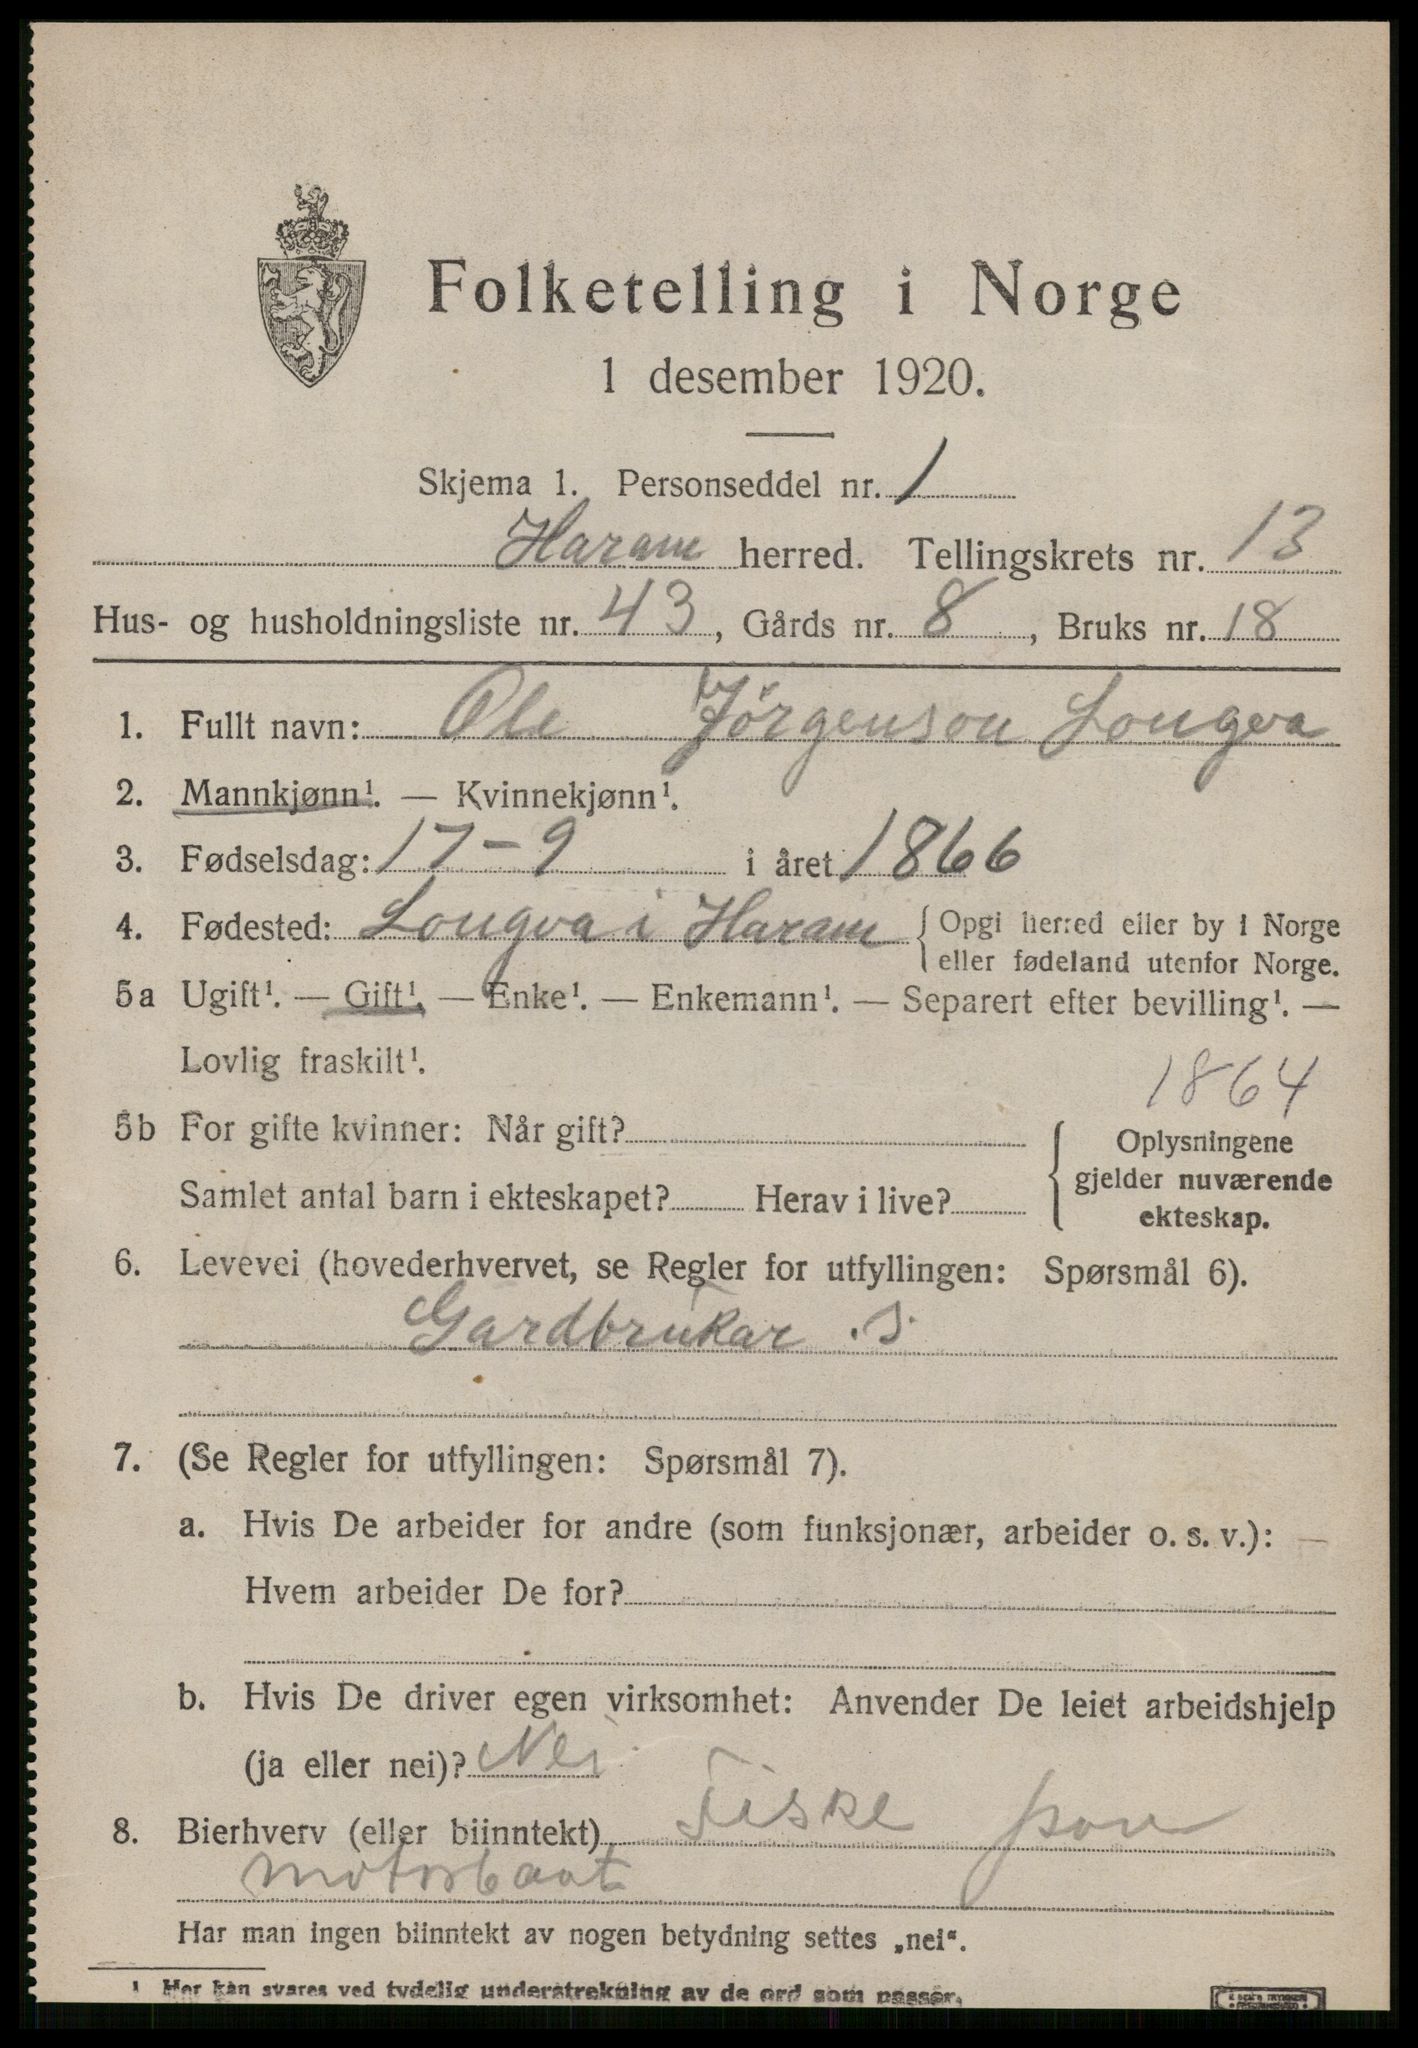 Folketelling i Norge
1 desember 1920.
Skjema 1. Personseddel nr. 1
Haram herred. Tellingskrets nr. 13
Hus- og husholdningsliste nr. 43, Gårds nr. 8, Bruks nr. 18
1. Fullt navn: Ole Jörgenson Longva
2. Mannkjønn¹. — Kvinnekjønn¹.
3. Fødselsdag: 17-9 i året 1866
4. Fødested: Longva i Haram { Opgi herred eller by i Norge
eller fødeland utenfor Norge.
5a Ugift¹. — Gift¹. — Enke¹. — Enkemann¹. — Separert efter bevilling¹. —
Lovlig fraskilt¹.
1864
5b For gifte kvinner: Når gift?
Samlet antal barn i ekteskapet? Herav i live?
{ Oplysningene
gjelder nuværende
ekteskap.
6. Levevei (hovederhvervet, se Regler for utfyllingen: Spørsmål 6).
Gardbrukar . s.
7. (Se Regler for utfyllingen: Spørsmål 7).
a. Hvis De arbeider for andre (som funksjonær, arbeider o. s. v.): —
Hvem arbeider De for?
b. Hvis De driver egen virksomhet: Anvender De leiet arbeidshjelp
(ja eller nei)? Nei
8. Bierhverv (eller biinntekt) Fiske paa
motorbaat
Har man ingen biinntekt av nogen betydning settes „nei“.
¹ Her kan svares ved tydelig understrekning av de ord som passer.